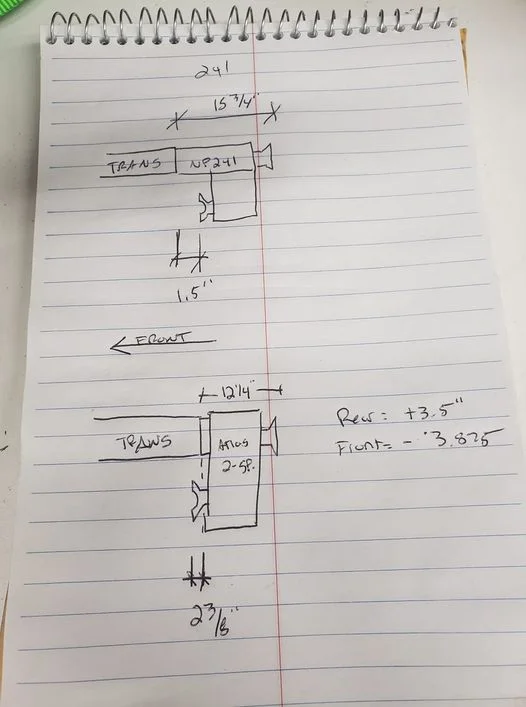 241
15 3/4"
TRANS NP241
1.5"
FRONT
12 1/4"
Rear: +3.5"
TRANS Atlas
2-SP.
Front= - 3.825
2 3/8"